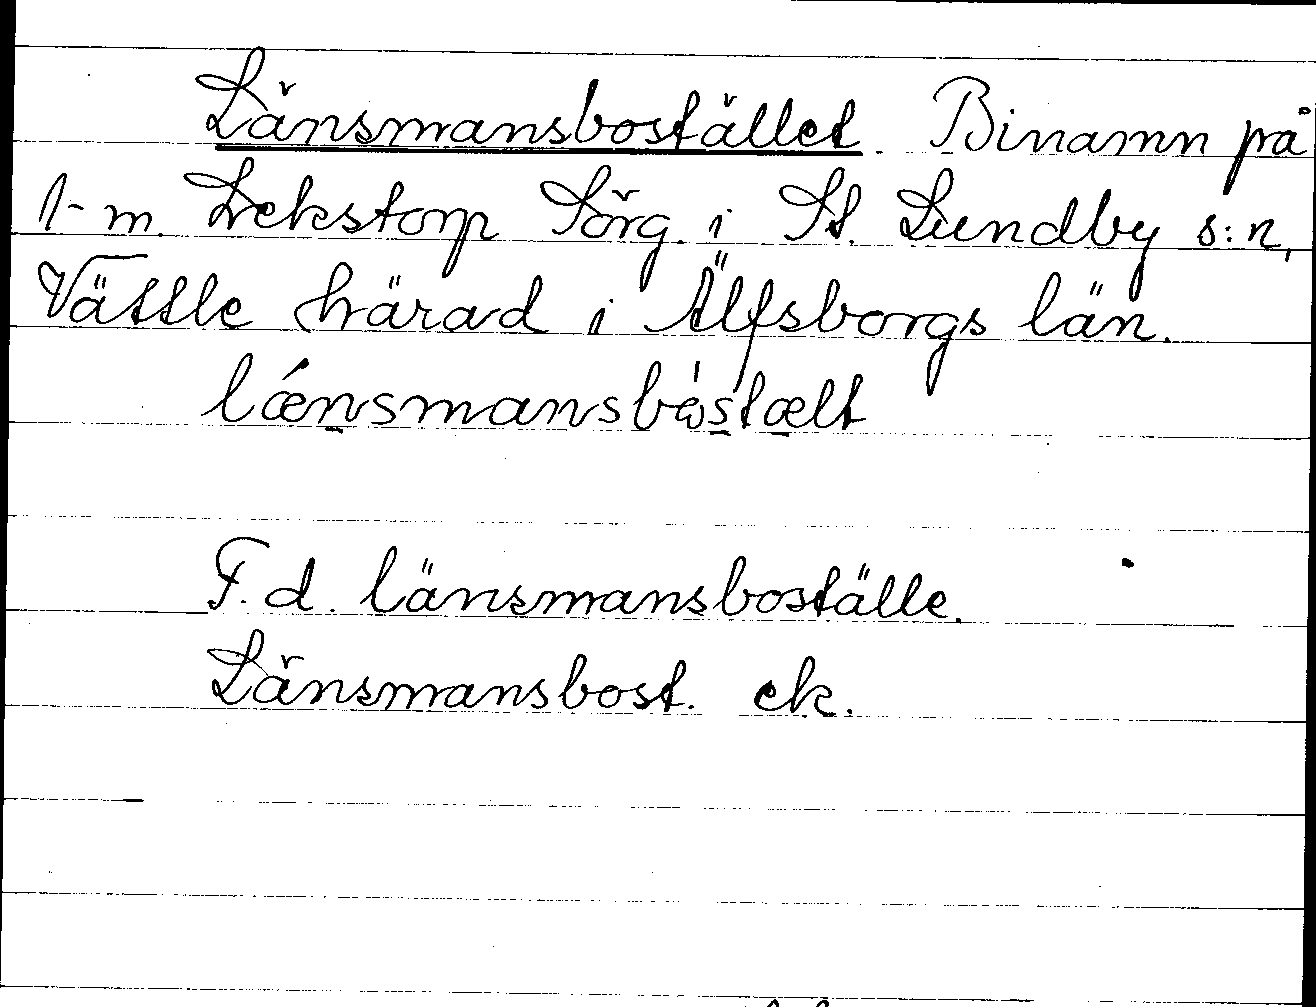 Länsmansbostället. Binamn på
1-m. Lekstorp Sörg. i St. Lundby s:n,
Vättle härad i Älfsborgs län.
F. d. länsmansboställe.
Länsmansbost. ek.